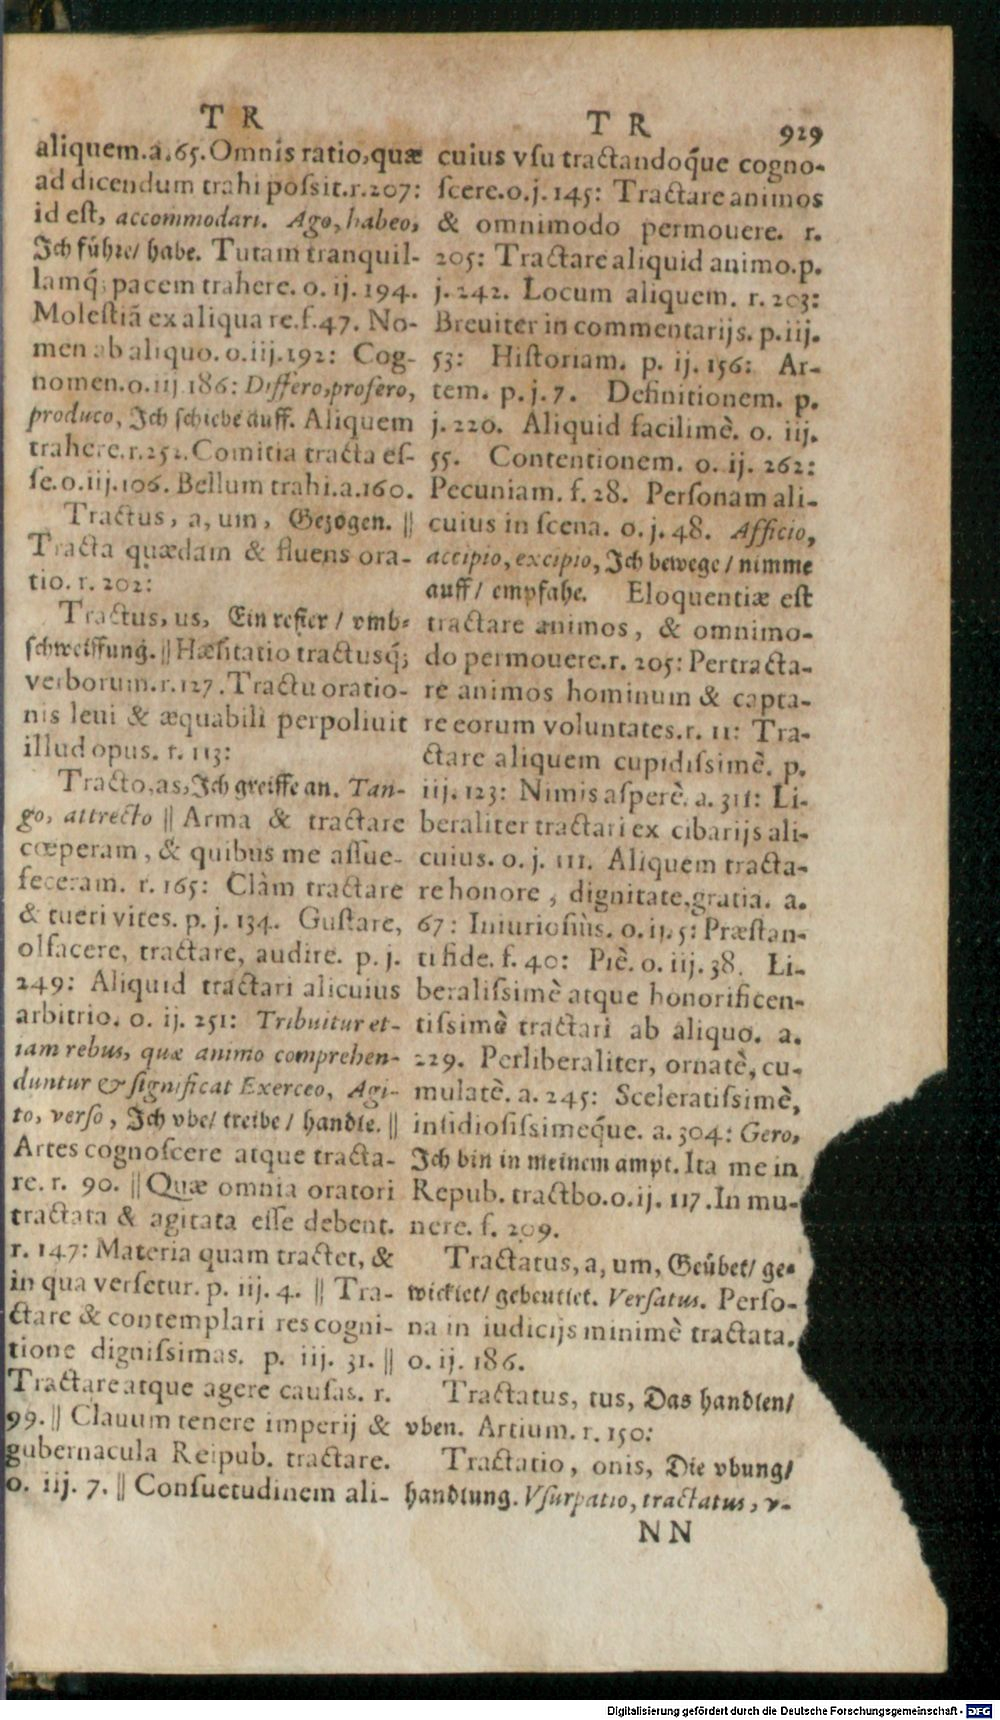 T R
T R
929
aliquem.a.65.Omnis ratio,quæ
ad dicendum trahi possit.r.207:
id est, accommodari. Ago, habeo,
Ich führe/ habe. Tutam tranquil-
lamq́; pacem trahere. o. ij. 194.
Molestiã ex aliqua re.f.47. No-
men ab aliquo. o.iij.192: Cog-
nomen.o.iij 186: Differo,profero,
produco, Ich schiebe auff. Aliquem
trahere.r.252.Comitia tracta es-
se.o.iij.106. Bellum trahi.a.160.
Tractus, a, um, Gezogen. ||
Tracta quædam & fluens ora-
tio. r. 202:
Tractus, us, Ein refier/ vmb-
schweiffung. || Hæsitatio tractusq́;
verborum.r.127.Tractu oratio-
nis leui & æquabili perpoliuit
illud opus. r. 113:
Tracto,as,Ich greiffe an. Tan-
go, attrecto || Arma & tractare
cœperam, & quibus me assue-
feceram. r. 165: Clàm tractare
& tueri vites. p. j. 134. Gustare,
olfacere, tractare, audire. p. j.
249: Aliquid tractari alicuius
arbitrio. o. ij. 251: Tribuitur et-
iam rebus, quæ animo comprehen-
duntur & significat Exerceo, Agi-
to, verso, Ich vbe/ treibe/ handle. ||
Artes cognoscere atque tracta-
re. r. 90. || Quæ omnia oratori
tractata & agitata esse debent.
r. 147: Materia quam tractet, &
in qua versetur. p. iij. 4. || Tra-
ctare & contemplari res cogni-
tione dignissimas. p. iij. 31. ||
Tractare atque agere causas. r.
99. || Clauum tenere imperij &
gubernacula Reipub. tractare.
o. iij. 7. || Consuetudinem ali-
cuius vsu tractandoq́ue cogno-
scere.o.j. 145: Tractare animos
& omnimodo permouere. r.
205: Tractare aliquid animo.p.
j. 242. Locum aliquem. r. 203:
Breuiter in commentarijs. p.iij.
53: Historiam. p. ij. 156: Ar-
tem. p. j. 7. Definitionem. p.
j. 220. Aliquid facilimè. o. iij.
55. Contentionem. o. ij. 262:
Pecuniam. f. 28. Personam ali-
cuius in scena. o. j. 48. Afficio,
accipio, excipio, Ich bewege/ nimme
auff/ empfahe. Eloquentiæ est
tractare animos, & omnimo-
do permouere.r. 205: Pertracta-
re animos hominum & capta-
re eorum voluntates.r. 11: Tra-
ctare aliquem cupidissimè. p.
iij. 123: Nimis asperè. a. 311: Li-
beraliter tractari ex cibarijs ali-
cuius. o. j. 111. Aliquem tracta-
re honore, dignitate,gratia. a.
67: Iniuriosiùs. o. ij. 5: Præstan-
ti fide. f. 40: Piè. o. iij. 38. Li-
beralissimè atque honorificen-
tissimè tractari ab aliquo. a.
229. Perliberaliter, ornatè, cu-
mulatè. a. 245: Sceleratissimè,
insidiosissimeq́ue. a. 304: Gero,
Ich bin in meinem ampt. Ita me in
Repub. tractbo.o.ij. 117.In mu-
nere. f. 209.
Tractatus, a, um, Geübet/ ge-
wicklet/ gebeutlet. Versatus. Perso-
na in iudicijs minimè tractata.
o. ij. 186.
Tractatus, tus, Das handlen/
vben. Artium. r. 150:
Tractatio, onis, Die vbung/
handlung. Vsurpatio, tractatus, v-
NN
Digitalisierung gefördert durch die Deutsche Forschungsgemeinschaft - DFG